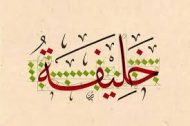 خَلِيفَةُ